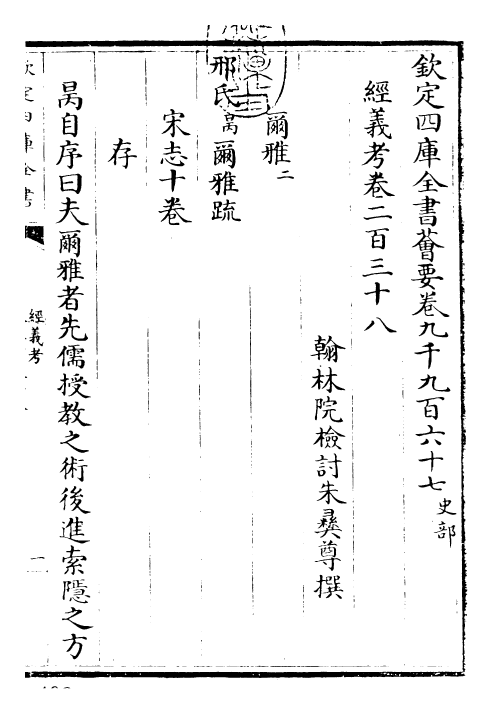 欽定四庫全書薈要卷九千九百六十七 史部
經義考卷二百三十八
翰林院檢討朱彝尊撰
爾雅二
邢氏昺爾雅疏
宋志十卷
存
昺自序曰夫爾雅者先儒授教之術後進索隱之方
欽定四庫全書
經義考
一